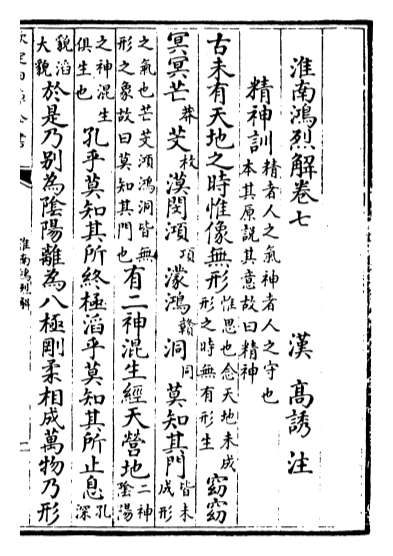 淮南鴻烈解卷七
漢 高誘 注
精神訓精者人之氣神者人之守也本其原說其意故曰精神
古未有天地之時惟像無形惟思也念天地未成形之時無有形生窈窈
冥冥芒莽芠抆漠閔澒項濛鴻贛洞同莫知其門皆未成形
之氣也芒芠澒鴻洞皆無形之象故曰莫知其門也有二神混生經天營地二神陰陽
之神混生俱生也孔乎莫知其所終極滔乎莫知其所止息孔深
貌滔大貌於是乃别為陰陽離為八極剛柔相成萬物乃形
淮南鴻烈解